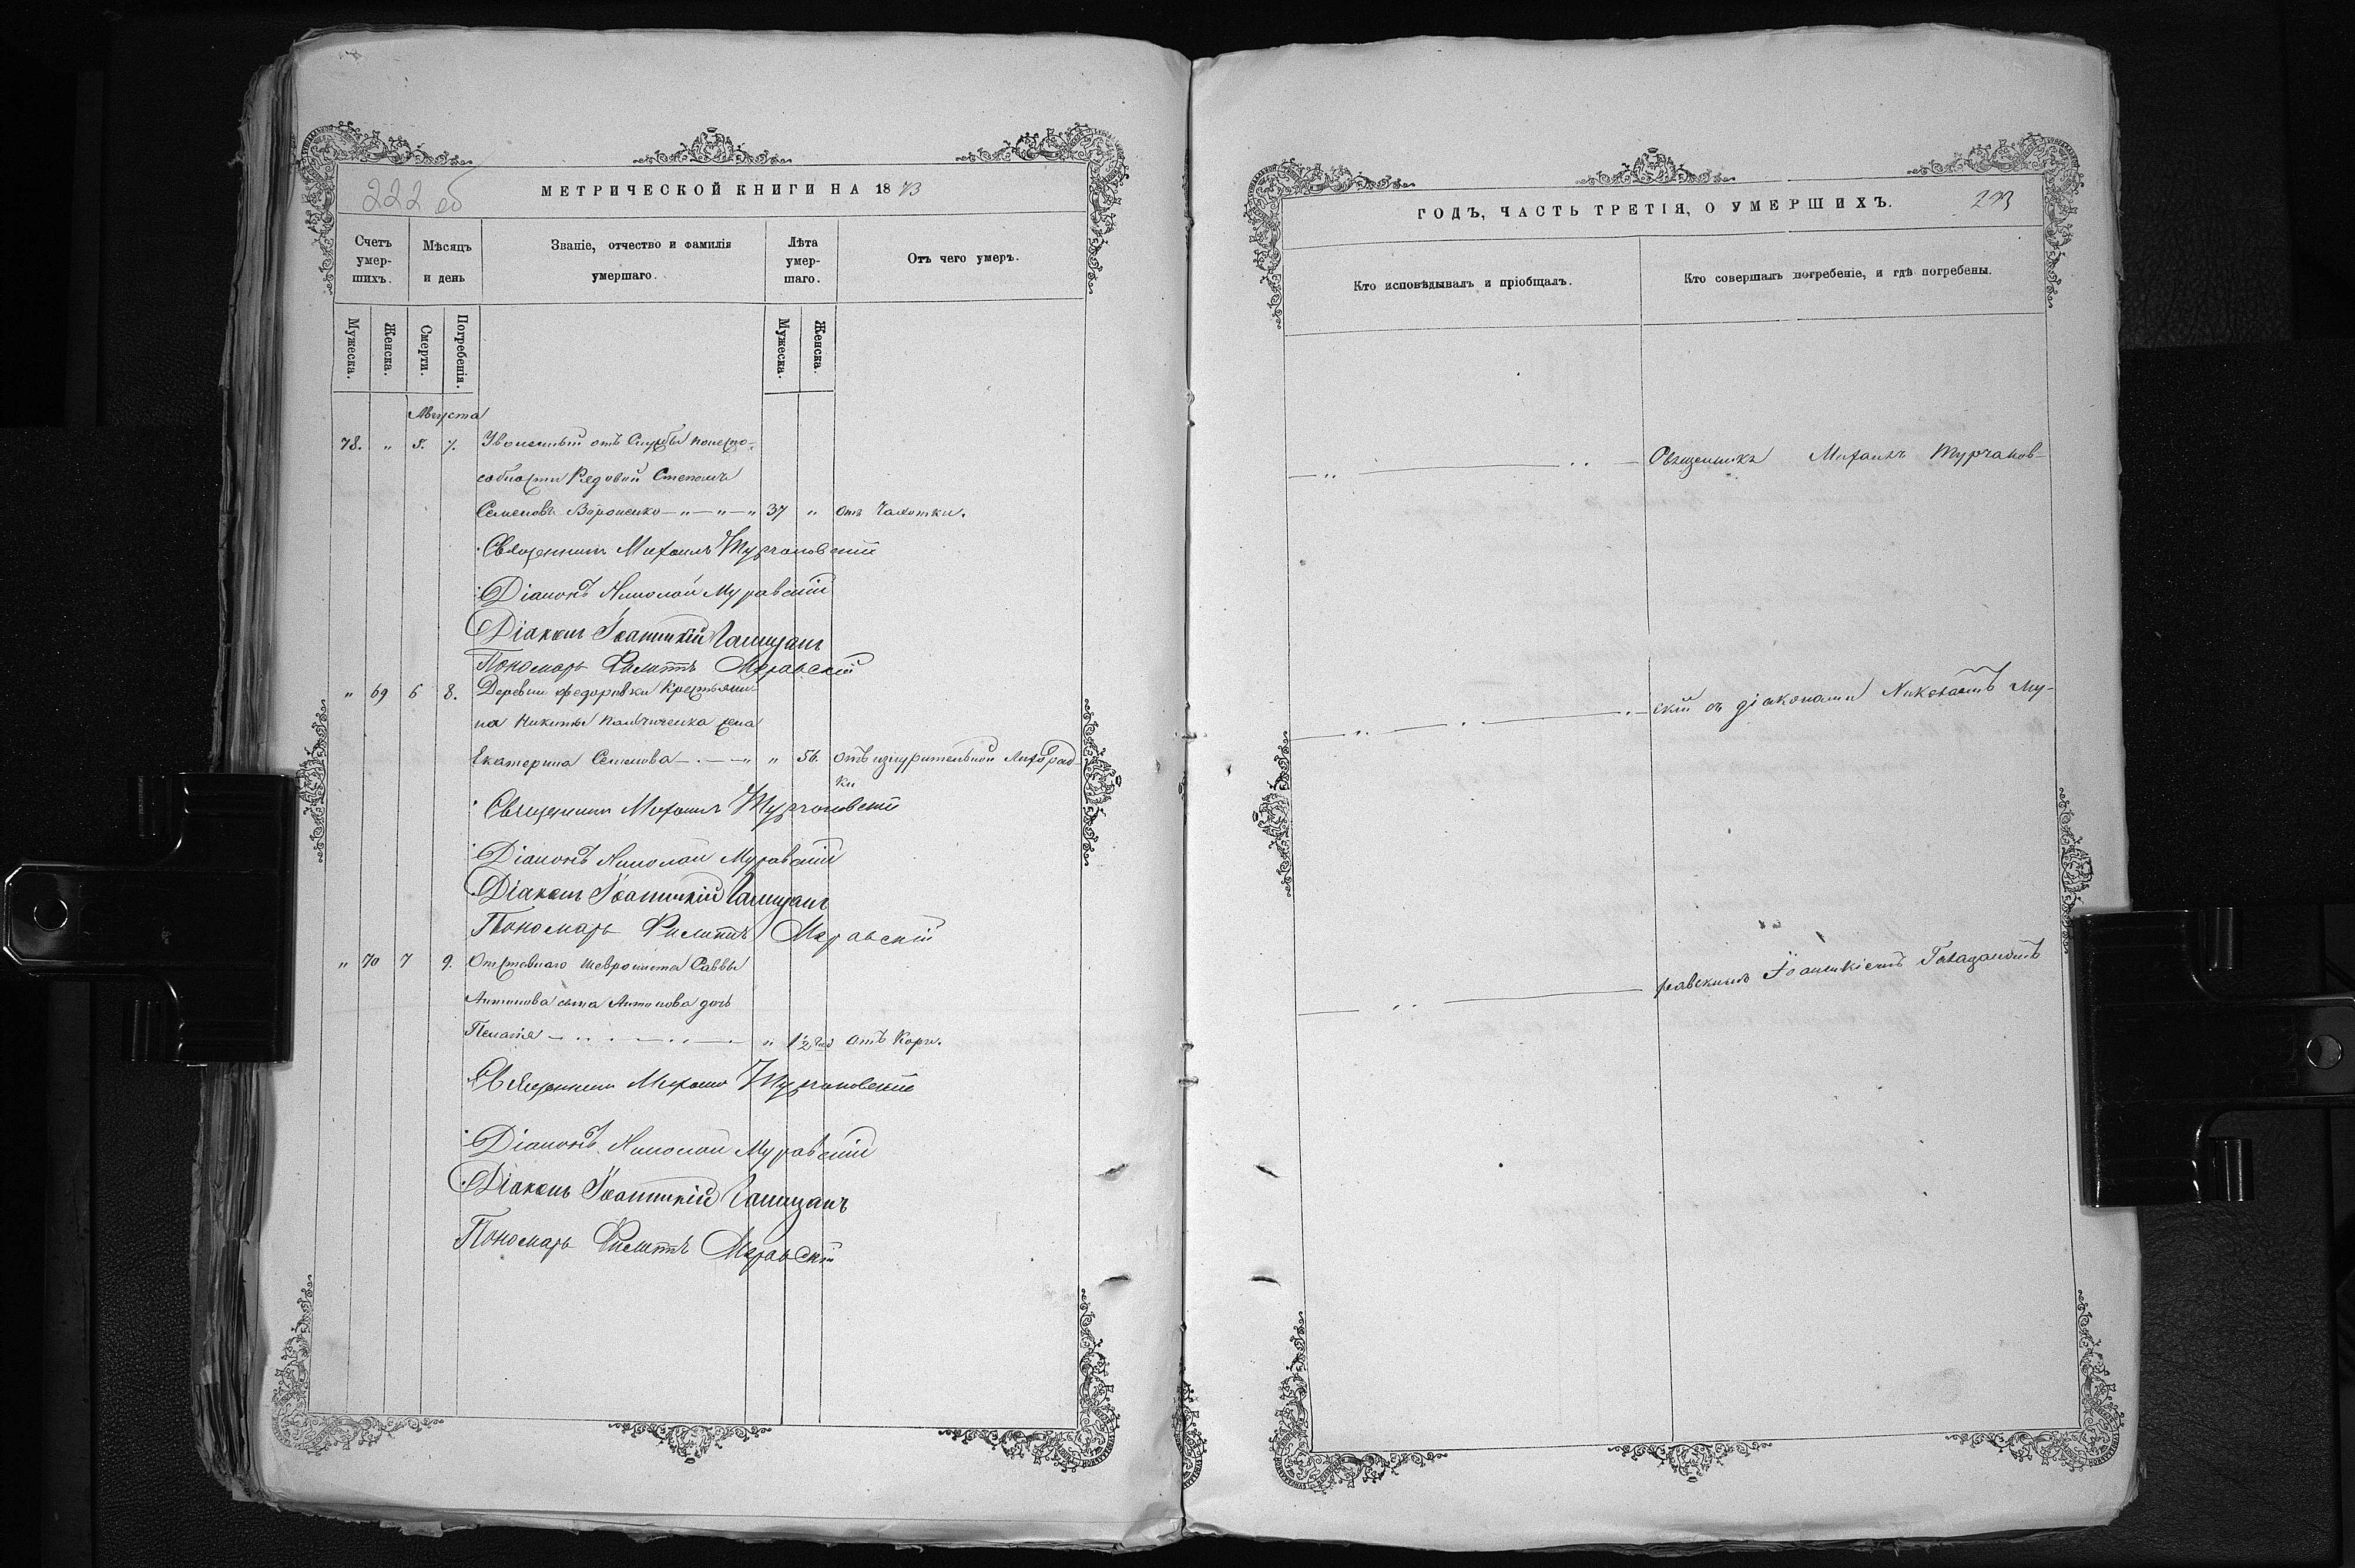 222 об
МЕТРИЧЕСКОЙ КНИГИ НА 1873
Счетъ умер-шихъ.
Мѣсяцъ и день
Званіе, отчество и фамилія умершаго.
Лѣта умер-шаго.
Отъ чего умеръ.
Мужеска.
Женска.
Смерти.
Погребенія.
Мужеска.
Женска.
Августа
78. " 5. 7. Уволенный отъ Службы понеспо-
собности Рядовой Степанъ
Семеновъ Вороненко — " — " — " 37 " Отъ Чахотки.
Священникъ Михаилъ Турчановскій
Діаконъ Николай Муравскій
Діаконъ Іоанникій
Пономарь Филиппъ Муравскій
" 69 6 8. Деревни Федоровки Крестьяни-
на Никиты жена
Екатерина Семенова — " " 56. Отъ изнурительной Лихорад-
ки
Священникъ Михаилъ Турчановскій
Діаконъ Николай Муравскій
Діаконъ Іоанникій
Пономарь Филиппъ Муравскій
" 70 7 9. Отставнаго Саввы
Антонова сына Антонова дочь
Пелагія " 1½ год Отъ Кори.
Священникъ Михаилъ Турчановскій
Діаконъ Николай Муравскій
Діаконъ Іоанникій
Пономарь Филиппъ Муравскій
ГОДЪ, ЧАСТЬ ТРЕТІЯ, О УМЕРШИХЪ.
223
Кто исповѣдывалъ и пріобщалъ.
Кто совершалъ погребеніе, и гдѣ погребены.
Священникъ Михаилъ Турчанов-
скій съ діаконами Николаемъ Му-
равскимъ Іоанникіемъ